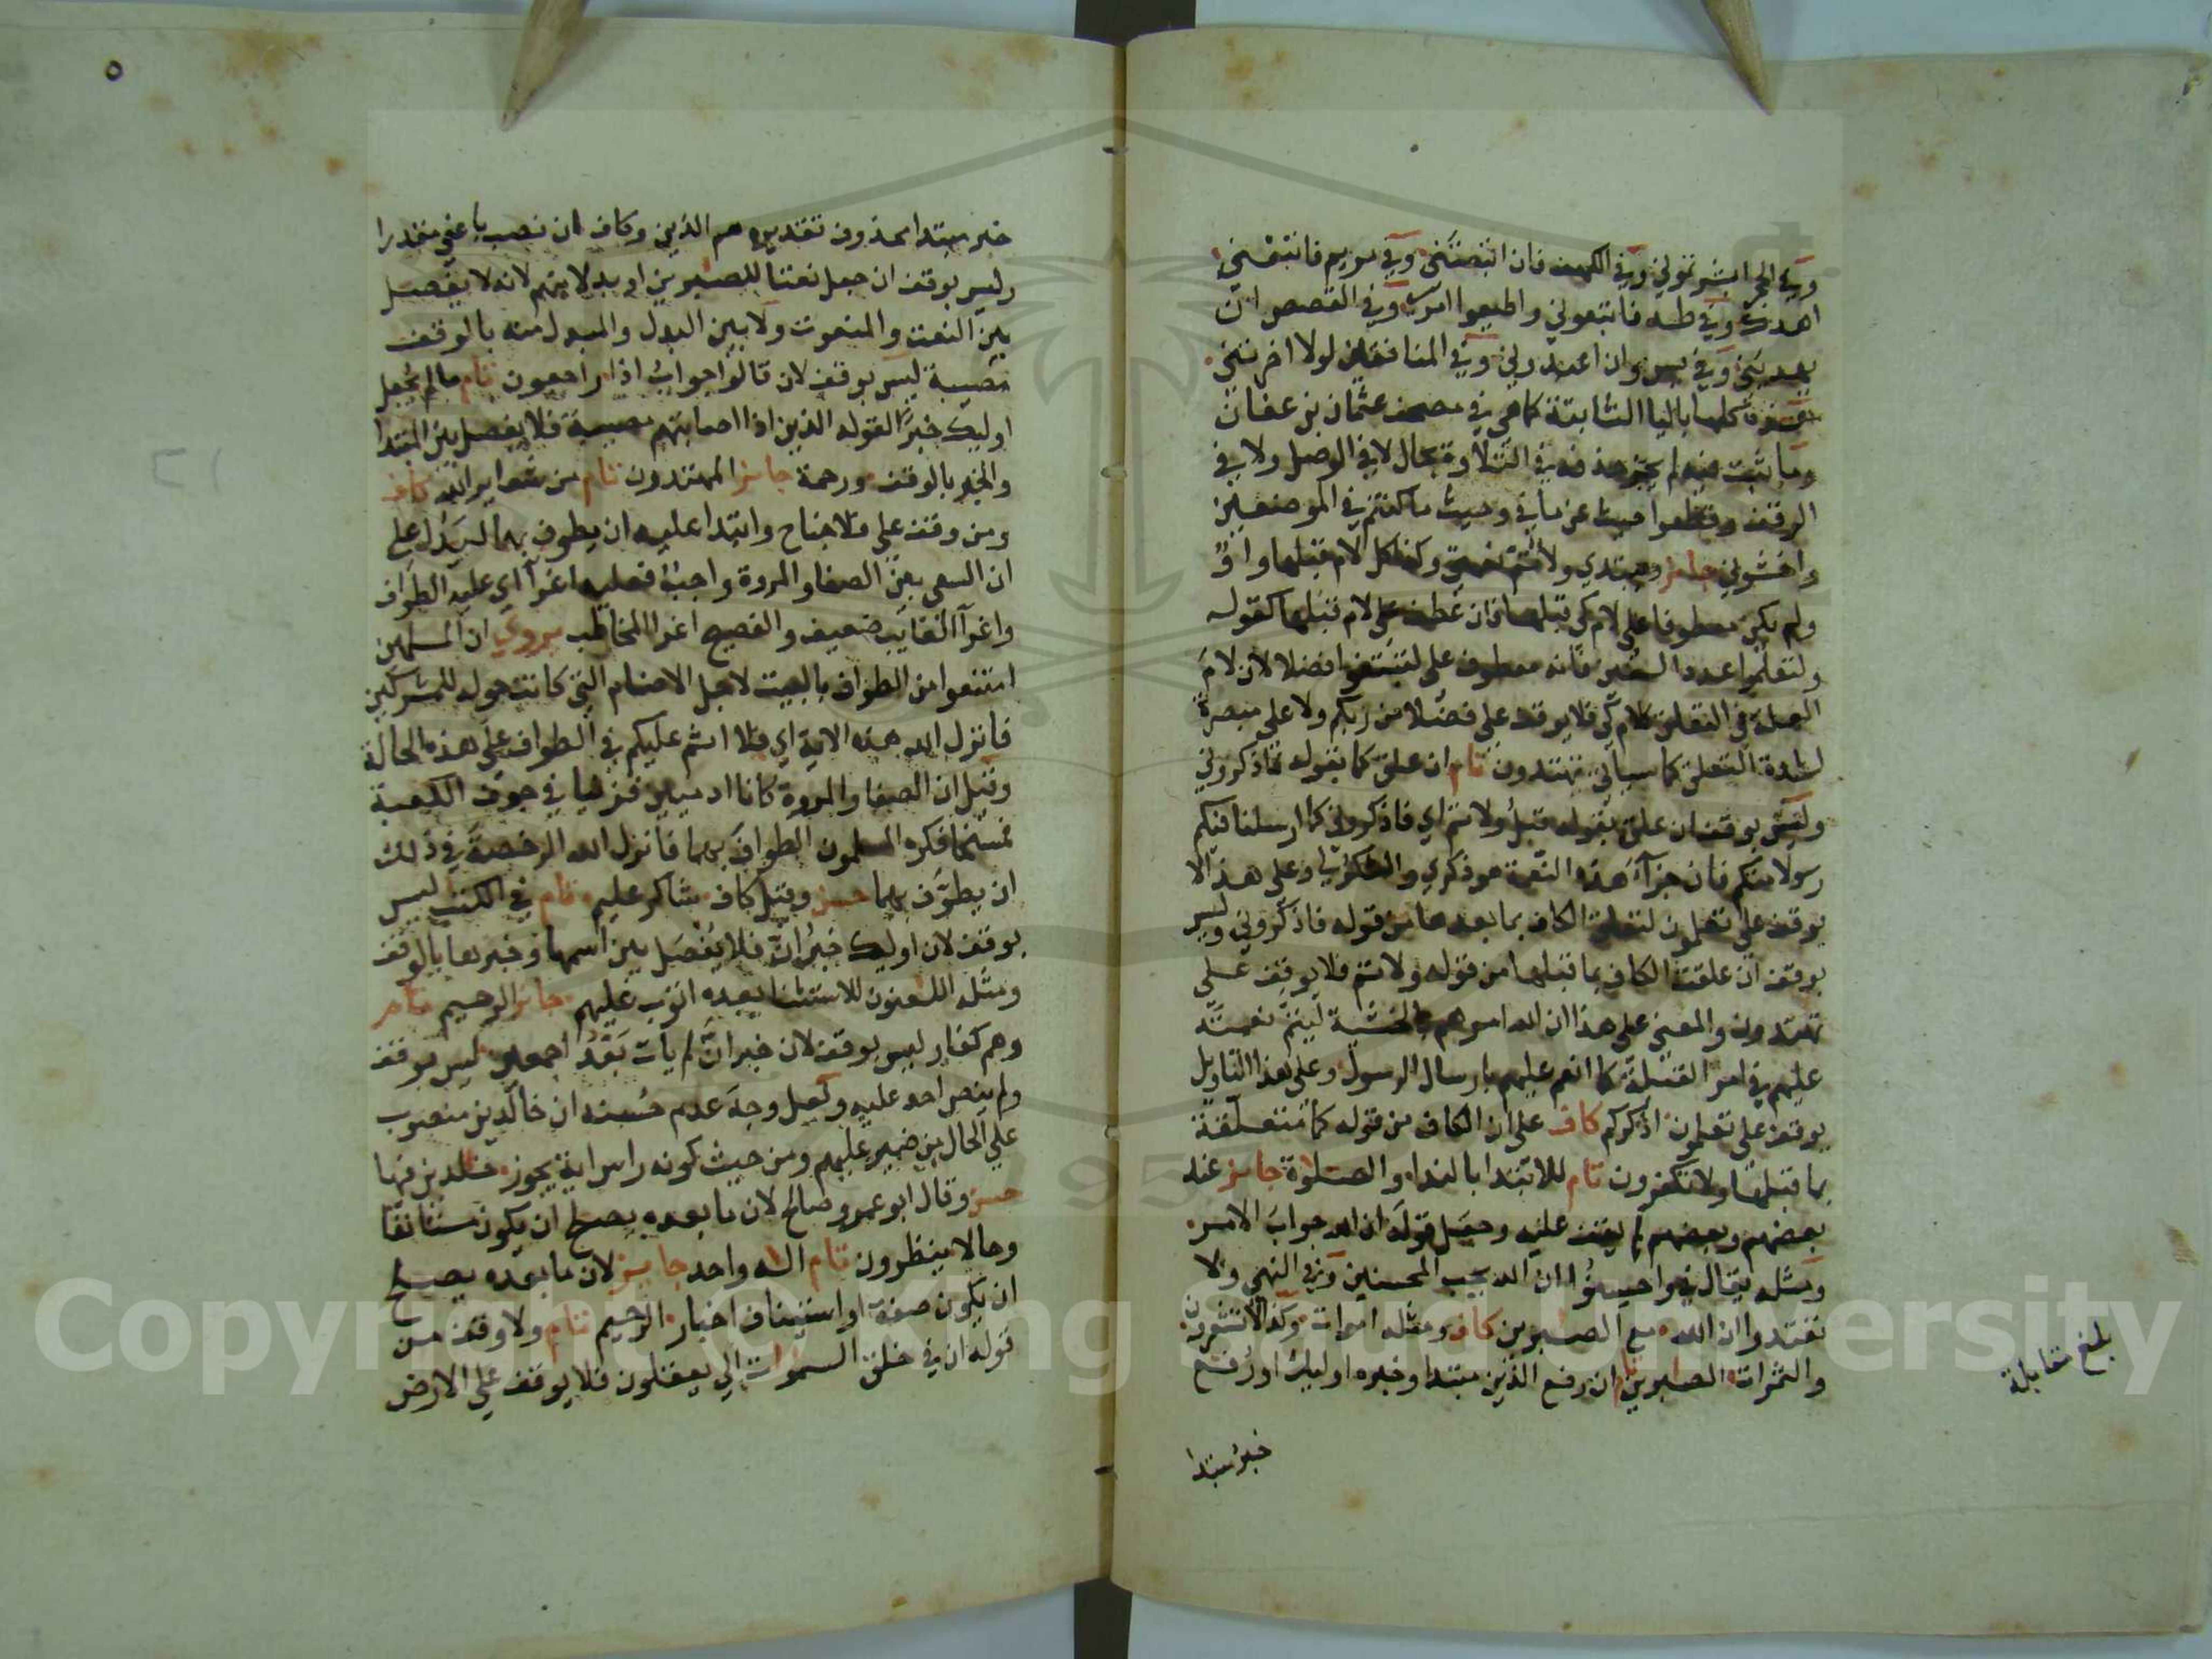 وفي الحجر ابشرتموني وفي الكهف فان اتبعتني وفي مريم فاتبعني
اهدك وفي طه فاتبعوني واطيعوا امري وفي القصص ان
يهديني وفي يس وان اعبدوني وفي المنافقين لولا اخرتني
كلها باليا الثابتة كما هي في مصحف عثمان بن عفان
وما ثبت فيه لم يجز حذفه في التلاوة بحال لا في الوصل ولا في
الوقف وقطعوا حيث عن ما في وحيث ما كنتم في الموضعين
واخشوني جايز ويبتدي ولاتم نعمتي وكذا كل لام قبلها واوٌ
ولم يكن معطوفا على لام كي قبلها فان عطف على لام قبلها كقوله
ولتعلموا عدد السنين فانه معطوف على لتبتغوا فضلا لان لام
العلة في التعلق كلام كي فلا يوقف على فضلا من ربكم ولا على مبصرة
لشدة التعلق كما سياتي تهتدون تام ان علق كما بقوله فاذكروني
وليس بوقف ان علق بقوله قبل ولاتم اي فاذكروني كما ارسلنا فيكم
رسولا منكم فان جزآء هذه النعمة هو ذكري والشكر لي وعلى هذا لا
يوقف على تعلمون لتعلق الكاف بما بعدها من قوله فاذكروني وليس
بوقف ان علقت الكاف بما قبلها من قوله ولاتم فلا يوقف على
تهتدون والمعنى على هذا ان الله امرهم بالخشية ليتم نعمته
عليهم في امر القبلة كما انعم عليهم بارسال الرسول وعلى هذا التاويل
يوقف على تعلمون اذكركم كاف على ان الكاف من قوله كما متعلقة
بما قبلها ولا تكفرون تام للابتدا بالندا والصلوة جايز عند
بعضهم وبعضهم لم يقف عليه وجعل قوله ان الله جواب الامر
ومثله يقال في واحسنوا ان الله يحب المحسنين وفي النهي ولا
تعتدوا ان الله مع الصبرين كاف ومثله اموات وكذا لا تشعرون
والثمرات الصبرين تام ان رفع الذين مبتدا وخبره اوليك او رفع
خبر مبتدا
بلغ مقابلة
٥
خبر مبتدا محذوف تقديره هم الذين وكاف ان نصب باعني مقدرا
وليس بوقف ان جعل نعتا للصبرين او بدلا منهم لانه لا يفصل
بين النعت والمنعوت ولا بين البدل والمبدل منه بالوقف
مصيبة ليس بوقف لان قالوا جواب اذا راجعون تام ما لم يجعل
اوليك خبرا لقوله الذين اذا اصابتهم مصيبة فلا يفصل بين المبتدا
والخبر بالوقف ورحمة جايز المهتدون تام من شعاير الله كاف
ومن وقف على فلا جناح وابتدا عليه ان يطوف بهما ليدل على
ان السعي بين الصفا والمروة واجب فعليه اغرآ اي عليه الطواف
واغرآ الغايب ضعيف والفصيح اغرا المخاطب يروي ان المسلمين
امتنعوا من الطواف بالبيت لاجل الاصنام التي كانت حوله للمشركين
فانزل الله هذه الاية اي فلا اثم عليكم في الطواف على هذه الحالة
وقيل ان الصفا والمروة كانا ادميين فزنيا في جوف الكعبة
فمسخا فكره المسلمون الطواف بهما فانزل الله الرخصة في ذلك
ان يطوف بهما حسن وقيل كاف شاكر عليم تام في الكتب ليس
بوقف لان اوليك خبر ان فلا يفصل بين اسمها وخبرها بالوقف
ومثله اللعنون للاستثنا بعده اتوب عليهم جايز الرحيم تام
وهم كفار ليس بوقف لان خبر ان لم يات بعد اجمعين ليس بوقف
ولم ينص احد عليه ولعل وجه عدم حسنه ان خالدين منصوب
على الحال من ضمير عليهم ومن حيث كونه راس اية يجوز خلدين فيها
حسن وقال ابو عمرو صالح لان ما بعده يصلح ان يكون مستانفا
وحالا ينظرون تام اله واحد جايز لان ما بعده يصلح
ان يكون صفة او استيناف اخبار الرحيم تام ولا وقف من
قوله ان في خلق السموات الي يعقلون فلا يوقف على الارض